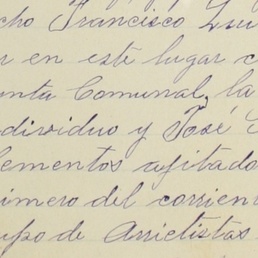 cho Francisco Lui
r en este lugar c
unta Comunal, la
dividuo y José
lementos agitado
rimero del corrien
upo de Arrietistas